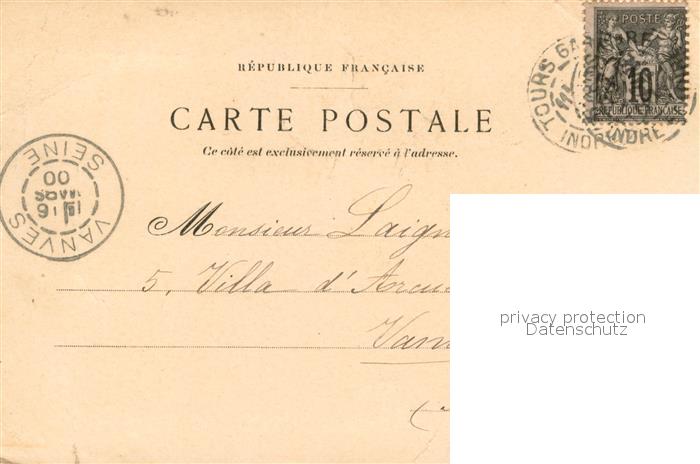 RÉPUBLIQUE FRANÇAISE
CARTE POSTALE
Ce côté est exclusivement réservé à l'adresse.
POSTE
10
RÉPUBLIQUE FRANÇAISE
TOURS GARE
INDRE
VANVES
16
MARS
00
SEINE
Monsieur Laign
5, Villa d'Arcue
Vanv
privacy protection
Datenschutz